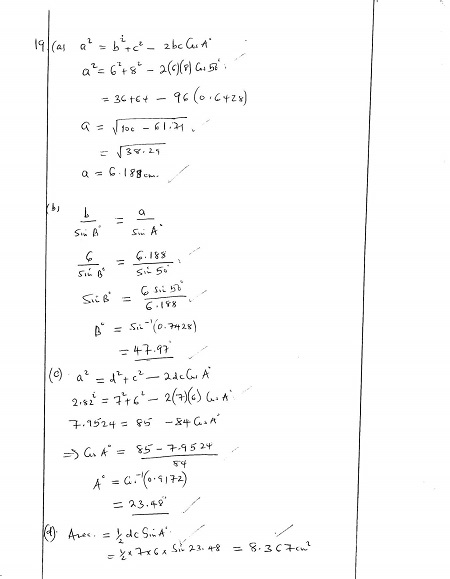 19. (a) a² = b² + c² - 2bc Cos A°
a² = 6² + 8² - 2(6)(8) Cos 50°
= 36+64 - 96 (0.6428)
a = √100 - 61.71
= √38.29
a = 6.188cm.
(b)
b/Sin B° = a/Sin A°
6/Sin B° = 6.188/Sin 50°
Sin B° = 6 Sin 50°/6.188
B° = Sin⁻¹(0.7428)
= 47.97°
(c) a² = d² + c² - 2dc Cos A°
2.82² = 7² + 6² - 2(7)(6) Cos A°
7.9524 = 85 - 84 Cos A°
⇒ Cos A° = 85 - 7.9524/84
A° = Cos⁻¹(0.9172)
= 23.48°
(d) Area = ½ dc Sin A°
= ½ × 7 × 6 × Sin 23.48 = 8.367cm²